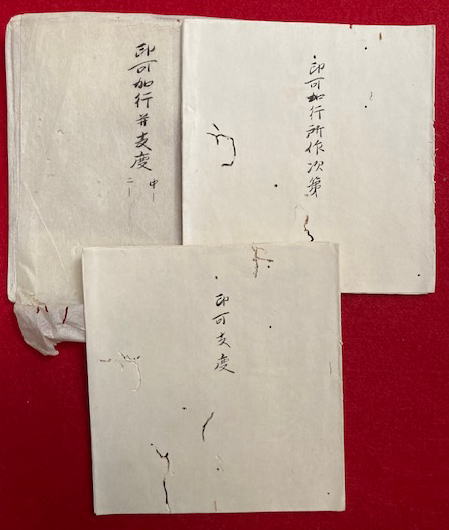 印可加行所作次第
印可加行并支度
中一
二一
印可支度